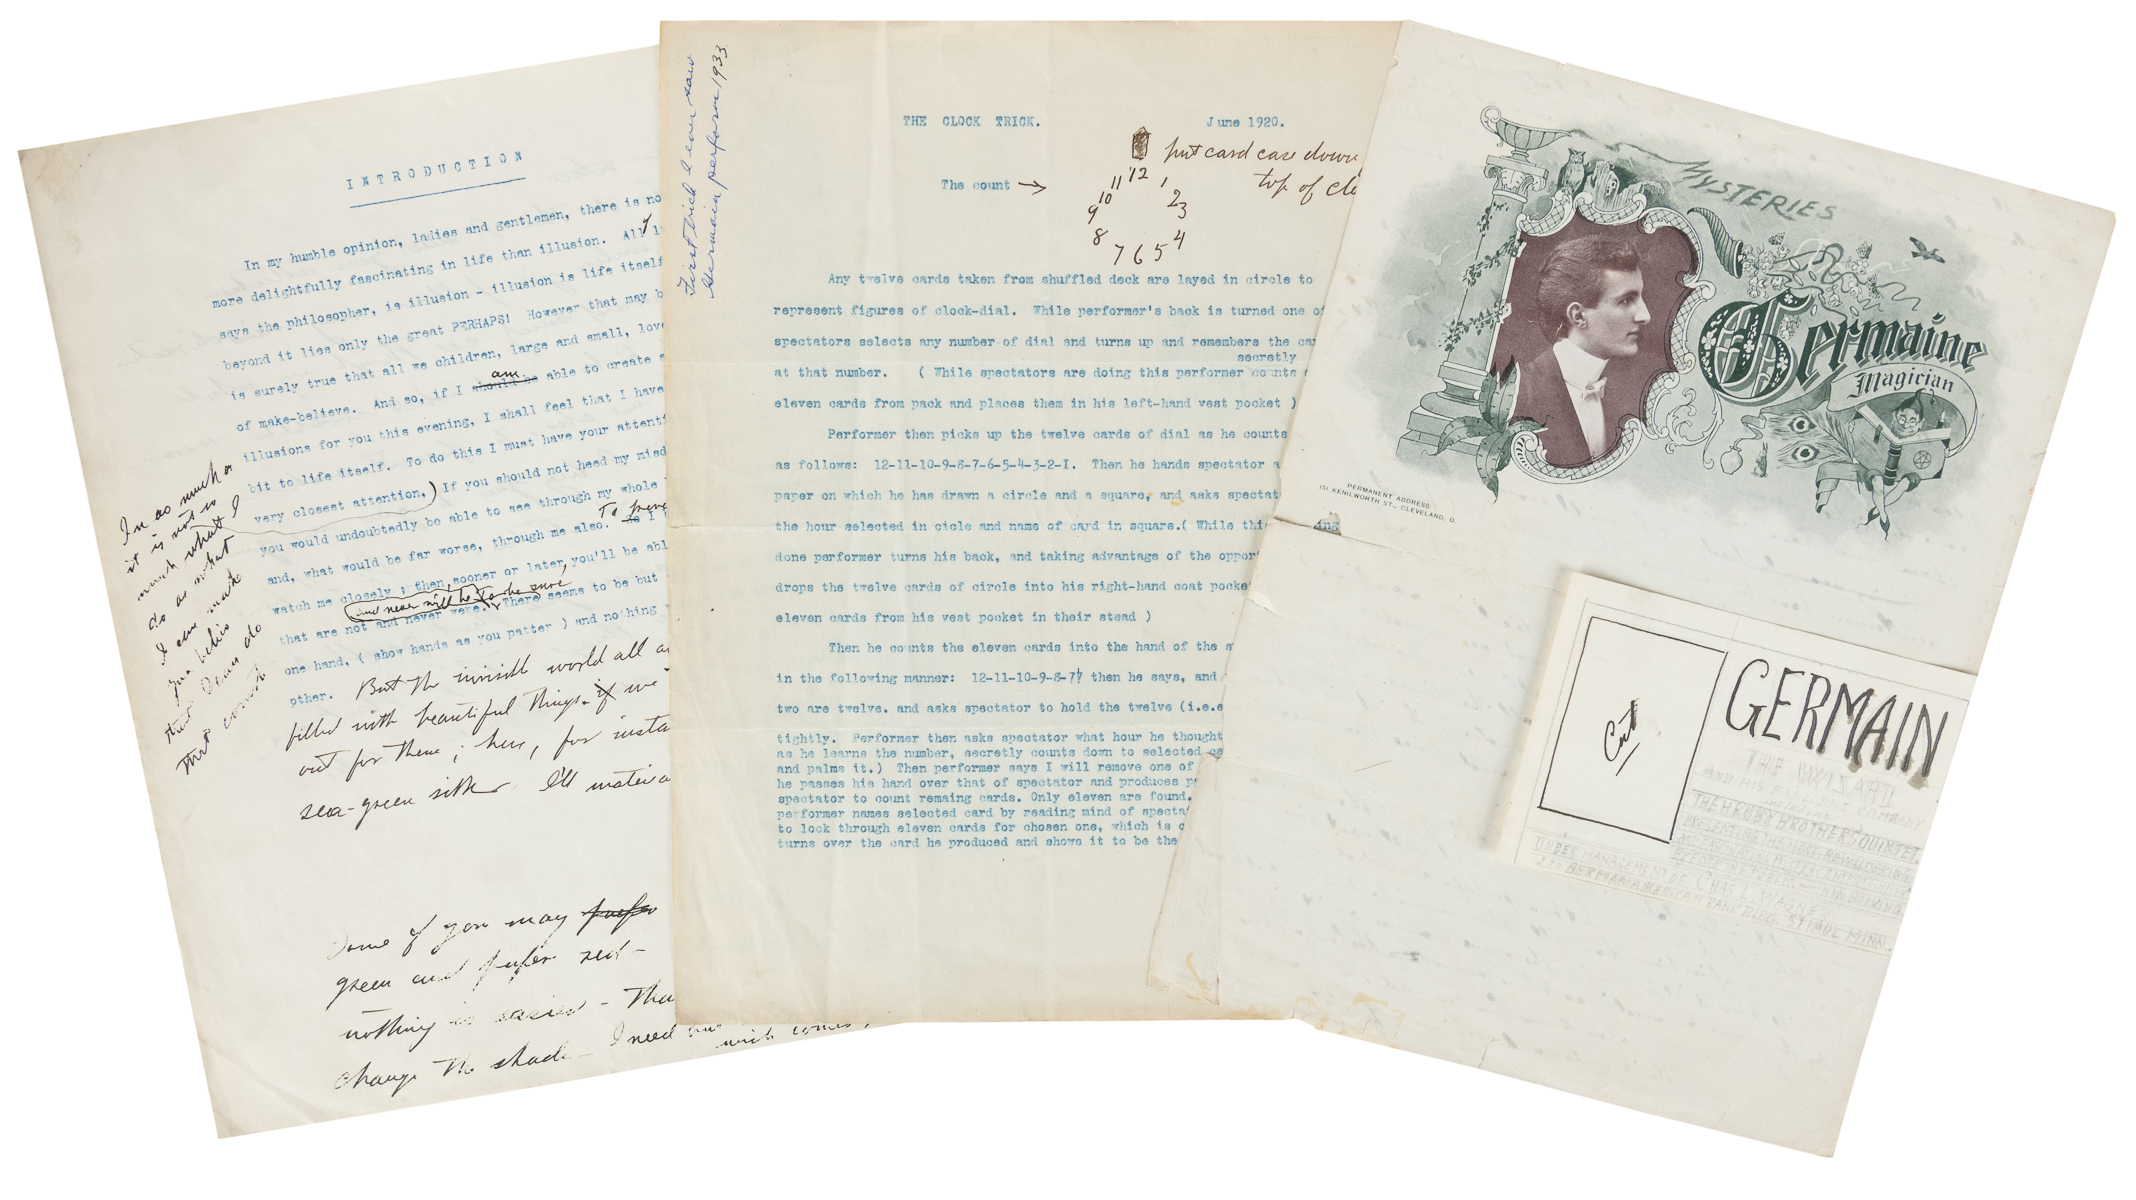 INTRODUCTION
In my humble opinion, ladies and gentlemen, there is no
more delightfully fascinating in life than illusion. All
says the philosopher, is illusion - illusion is life itself
beyond it lies only the great PERHAPS! However that may b
is surely true that all we children, large and small, love
of make-believe. And so, if I should be am able to create
illusions for you this evening, I shall feel that I have
bit to life itself. To do this I must have your attenti
very closest attention,) If you should not heed my misd
you would undoubtedly be able to see through my whole
and, what would be far worse, through me also. To
watch me closely; then, sooner or later, you'll be abl
and never will be to be sure
that are not and never were. There seems to be but
one hand, ( show hands as you patter ) and nothing
other. But the invisible world all
filled with beautiful things. if we
out for them; here, for insta
sea-green silk I'll materia
In as much as
it is not so
much what I
do as what
I can make
you believe
that I
that counts
Some of you may
green and prefer red-
nothing is easier - Tha
change the shade - I need
wish comes
First trick I ever saw
Germain perform 1933
THE CLOCK TRICK. June 1920.
put card case down
top of clo
The count →
12 1 2 3 4 5 6 7 8 9 10 11
Any twelve cards taken from shuffled deck are layed in circle to
represent figures of clock-dial. While performer's back is turned one of
spectators selects any number of dial and turns up and remembers the ca
secretly
at that number. ( While spectators are doing this performer counts
eleven cards from pack and places them in his left-hand vest pocket )
Performer then picks up the twelve cards of dial as he counts
as follows: 12-11-10-9-8-7-6-5-4-3-2-I. Then he hands spectator a
paper on which he has drawn a circle and a square, and asks spectat
the hour selected in cicle and name of card in square.( While thi ing
done performer turns his back, and taking advantage of the oppor
drops the twelve cards of circle into his right-hand coat pocke
eleven cards from his vest pocket in their stead )
Then he counts the eleven cards into the hand of the s
in the following manner: 12-11-10-9-8-7 then he says, and
two are twelve. and asks spectator to hold the twelve (i.e.e
tightly. Performer then asks spectator what hour he thought
as he learns the number, secretly counts down to selected ca
and palms it.) Then performer says I will remove one of
he passes his hand over that of spectator and produces
spectator to count remaing cards. Only eleven are found.
performer names selected card by reading mind of specta
to look through eleven cards for chosen one, which is
turns over the card he produced and shows it to be the
MYSTERIES
Germaine
Magician
PERMANENT ADDRESS
151 KENILWORTH ST., CLEVELAND, O.
Cut
GERMAIN
THE WIZARD
AND HIS COMPANY
THE HRUBY BROTHERS QUINTET
UNDER MANAGEMENT OF CHAS L. WAGNER
222 GERMAN AMERICAN BANK BLDG. ST PAUL MINN.